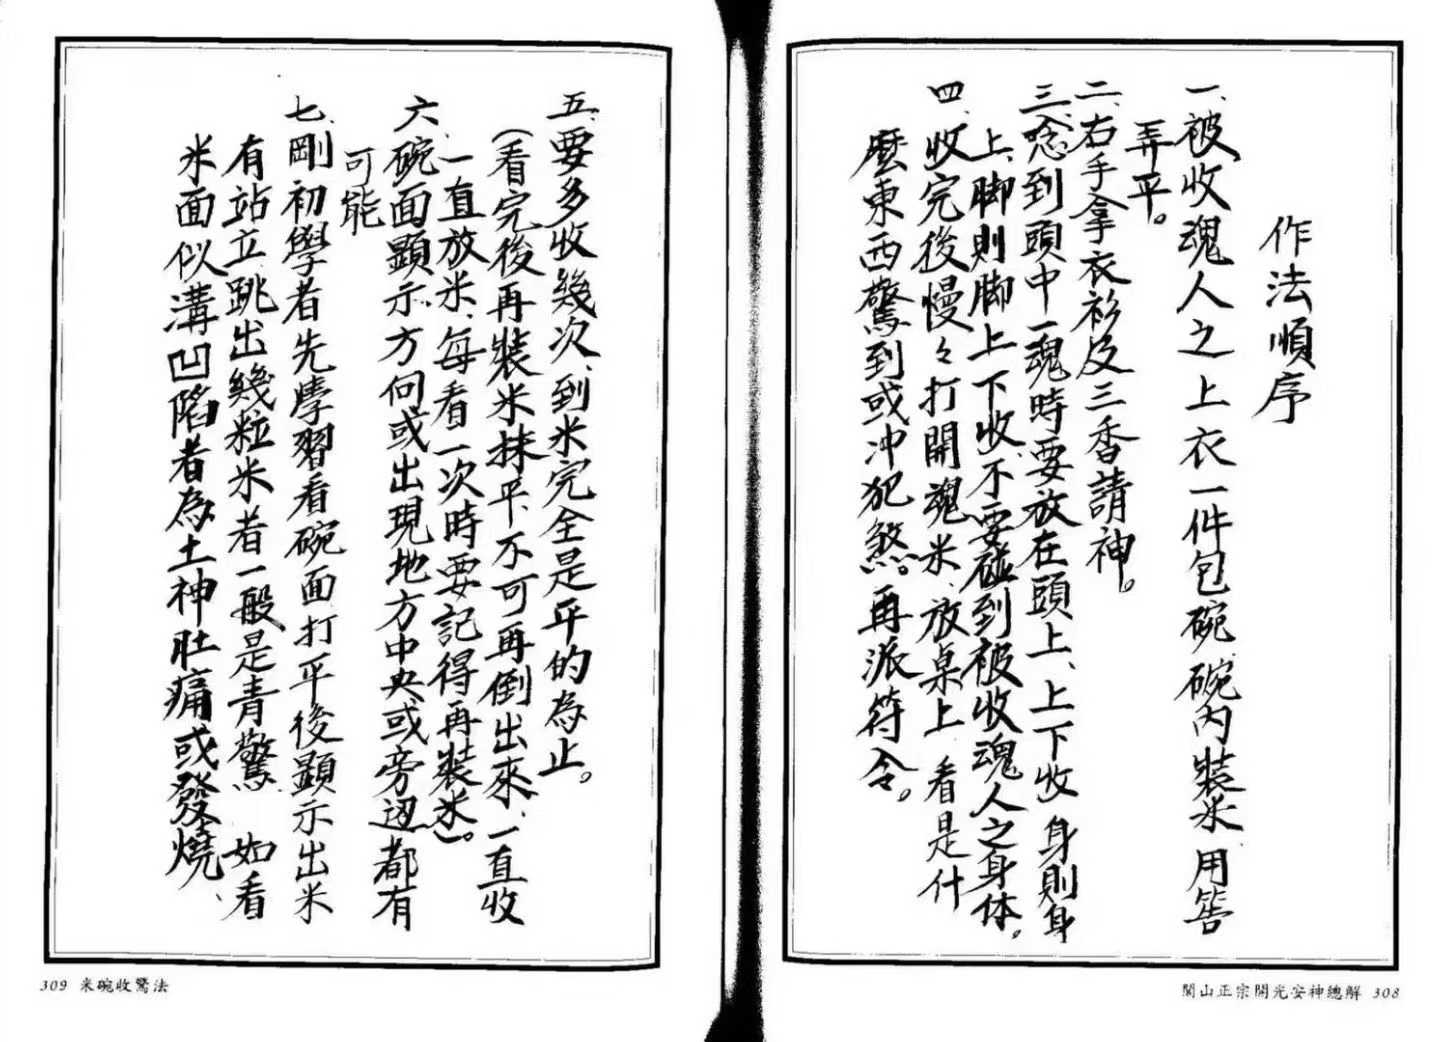 作法順序
一、被收魂人之上衣一件包碗、碗內裝米、用筶
弄平。
二、右手拿衣衫及三香請神。
三、唸到頭中一魂時要放在頭上、上下收 身則身
上、脚則脚上下收、不要碰到被收魂人之身体。
四、收完後慢々打開魂米、放桌上 看是什
麼東西驚到或冲犯煞。再派符令。
閭山正宗開光安神總解 308
五、要多收幾次、到米完全是平的為止。
(看完後再裝米抹平、不可再倒出來、一直收
一直放米、每看一次時要記得再裝米)。
六、碗面顯示方向或出現地方中央或旁边都有
可能
七、剛初學者先學習看碗面打平後顯示出米
有站立跳出幾粒米者一般是青驚 如看
米面似溝凹陷者為土神肚痛或發燒、
309 米碗收驚法